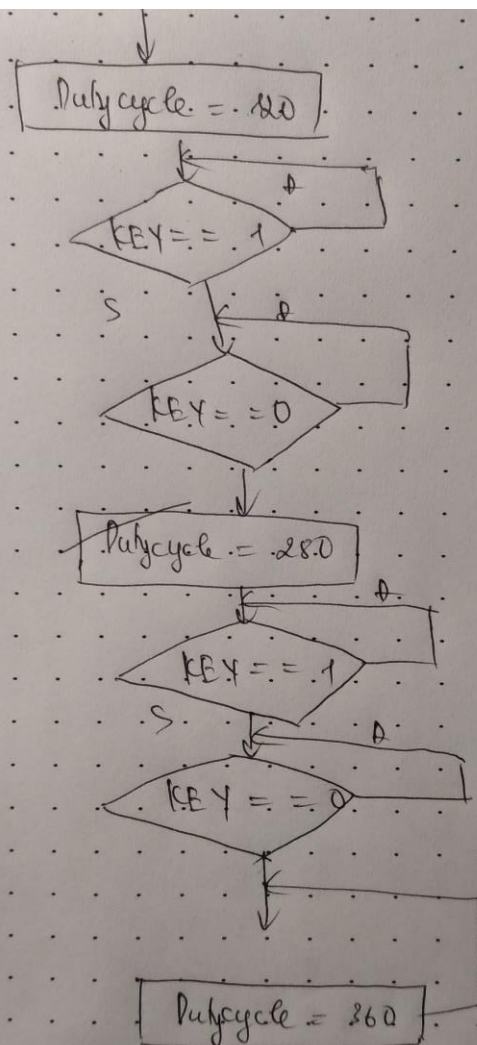 Dutycycle = 120
KEY == 1
S
KEY == 0
Dutycycle = 280
KEY == 1
S
KEY == 0
Dutycycle = 360